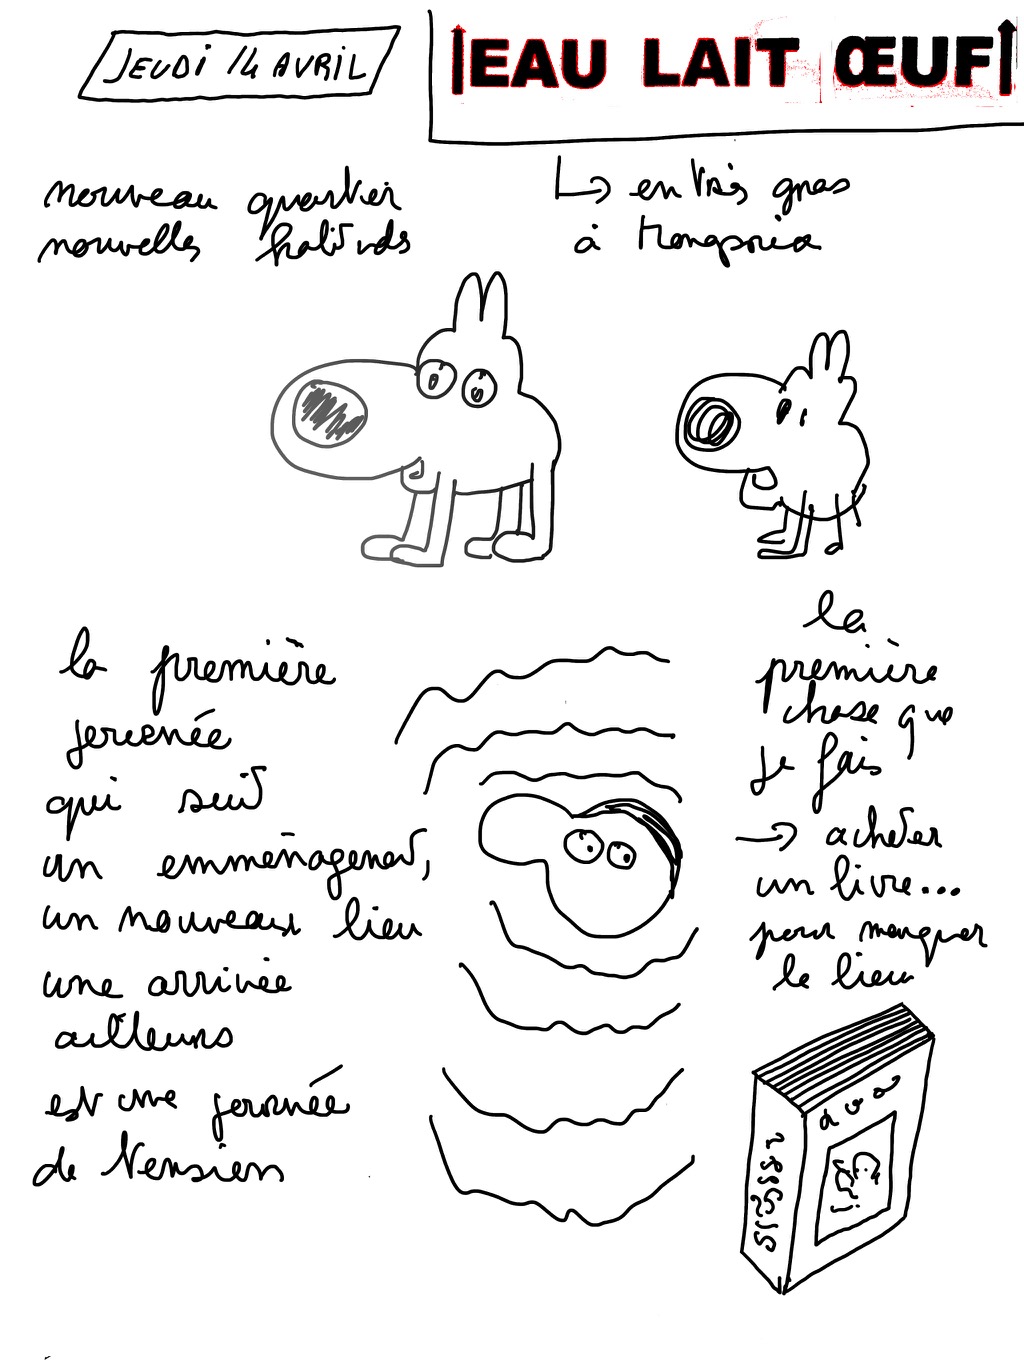 JEUDI 14 AVRIL
EAU LAIT ŒUF
nouveau quartier
nouvelles
↳ en très gros
à
la première
journée
qui suit
un emménagement,
un nouveau lieu
une arrivée
ailleurs
est une journée
de tension
la
première
chose que
je fais
→ acheter
un livre...
pour marquer
le lieu